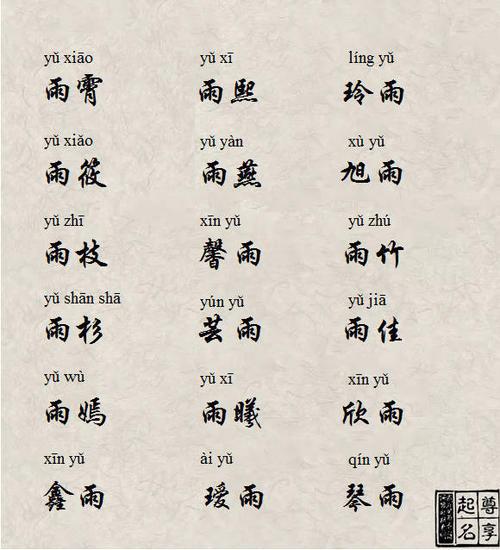 yǔ xiāo yǔ xī líng yǔ
雨霄 雨熙 玲雨
yǔ xiǎo yǔ yàn xù yǔ
雨筱 雨燕 旭雨
yǔ zhī xīn yǔ yǔ zhú
雨枝 馨雨 雨竹
yǔ shān shā yún yǔ yǔ jiā
雨杉 芸雨 雨佳
yǔ wù yǔ xī xīn yǔ
雨嫣 雨曦 欣雨
xīn yǔ ài yǔ qín yǔ
鑫雨 瑷雨 琴雨
尊享
起名